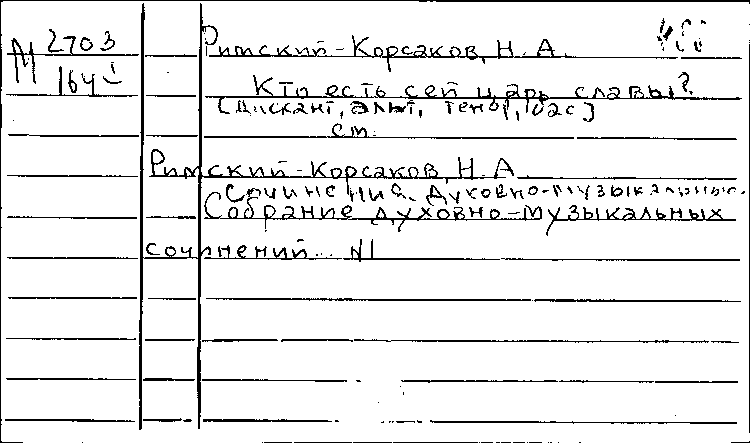 М 2703
164
Римский-Корсаков, Н. А.
Кто есть сей царь славы?
[Дискант, альт, тенор, бас]
см.
Римский-Корсаков, Н. А.
Сочинения. Духовно-музыкальные.
Собрание духовно-музыкальных
сочинений... №1